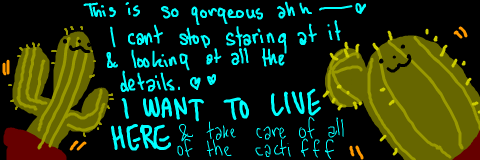 This is so gorgeous ahh
I cant stop staring at it
& looking at all the
details.
I WANT TO LIVE
HERE & take care of all
of the cacti fff